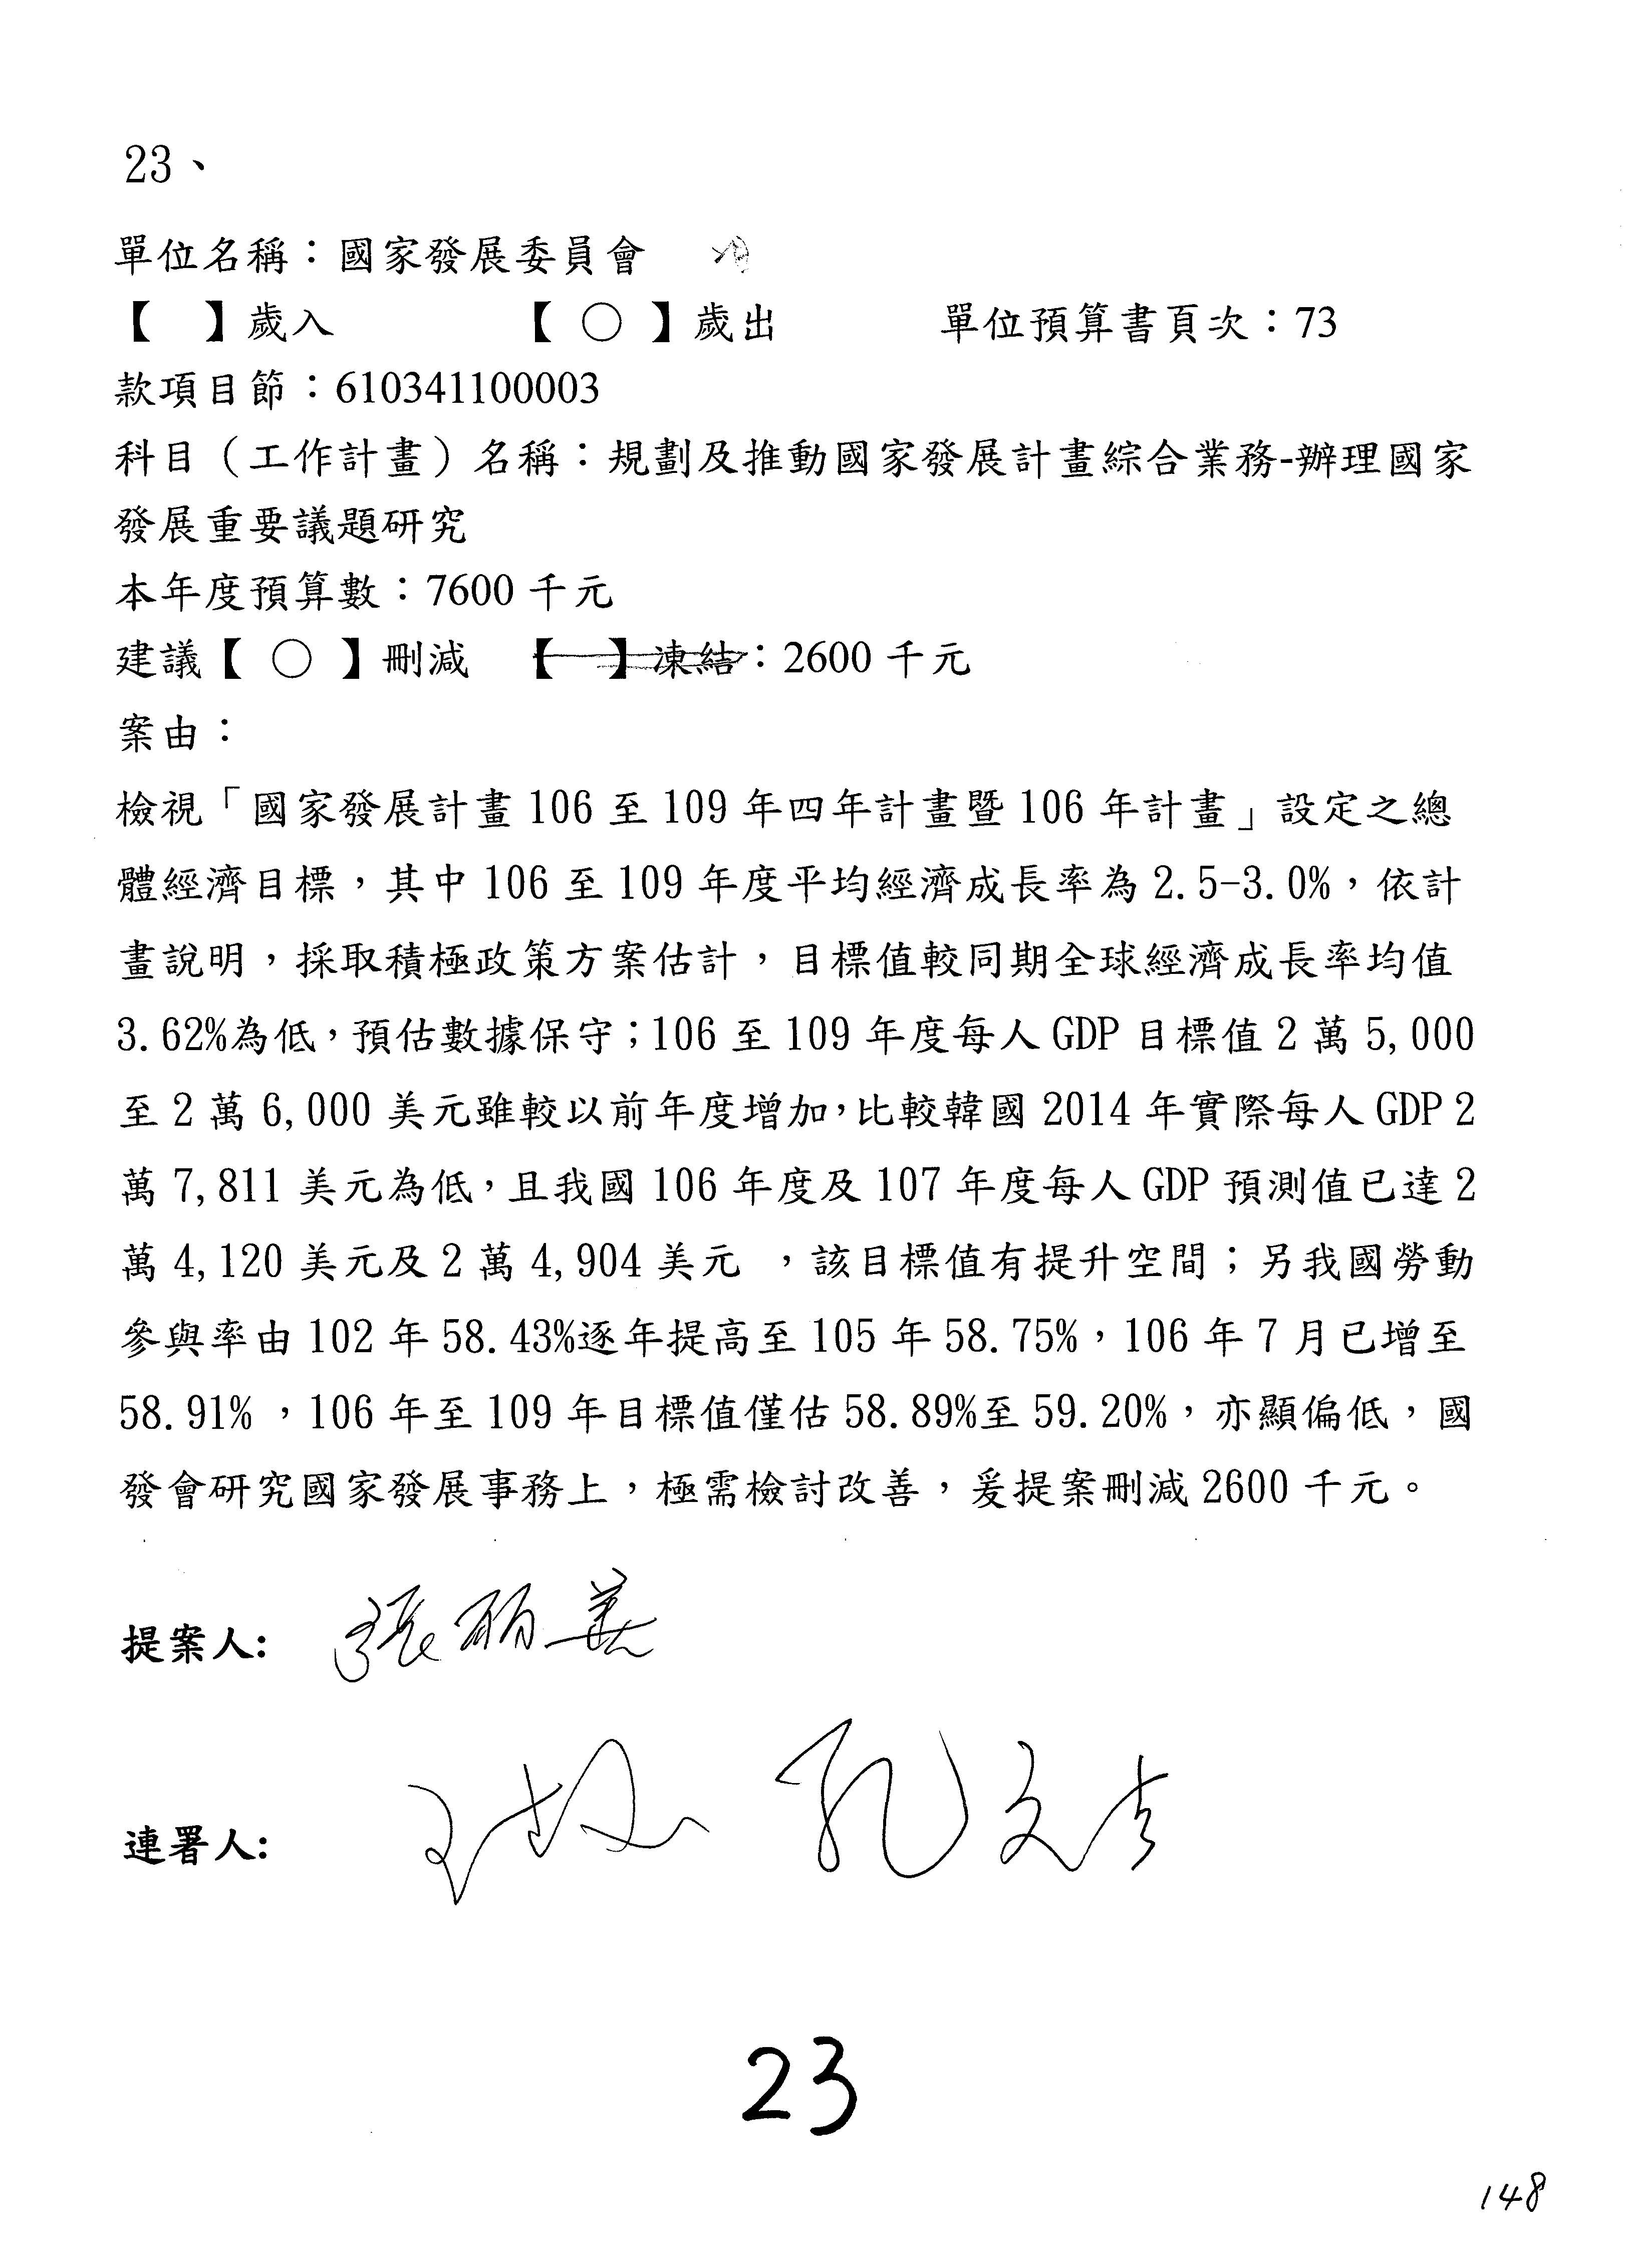 23、
單位名稱：國家發展委員會
【　】歲入　【 ○ 】歲出　單位預算書頁次：73
款項目節：610341100003
科目（工作計畫）名稱：規劃及推動國家發展計畫綜合業務-辦理國家
發展重要議題研究
本年度預算數：7600 千元
建議【 ○ 】刪減　【　】凍結：2600 千元
案由：
檢視「國家發展計畫 106 至 109 年四年計畫暨 106 年計畫」設定之總
體經濟目標，其中 106 至 109 年度平均經濟成長率為 2.5-3.0%，依計
畫說明，採取積極政策方案估計，目標值較同期全球經濟成長率均值
3.62%為低，預估數據保守；106 至 109 年度每人 GDP 目標值 2 萬 5,000
至 2 萬 6,000 美元雖較以前年度增加，比較韓國 2014 年實際每人 GDP 2
萬 7,811 美元為低，且我國 106 年度及 107 年度每人 GDP 預測值已達 2
萬 4,120 美元及 2 萬 4,904 美元 ，該目標值有提升空間；另我國勞動
參與率由 102 年 58.43%逐年提高至 105 年 58.75%，106 年 7 月已增至
58.91% ，106 年至 109 年目標值僅估 58.89%至 59.20%，亦顯偏低，國
發會研究國家發展事務上，極需檢討改善，爰提案刪減 2600 千元。
提案人: 張麗善
連署人: 孔文吉
23
148